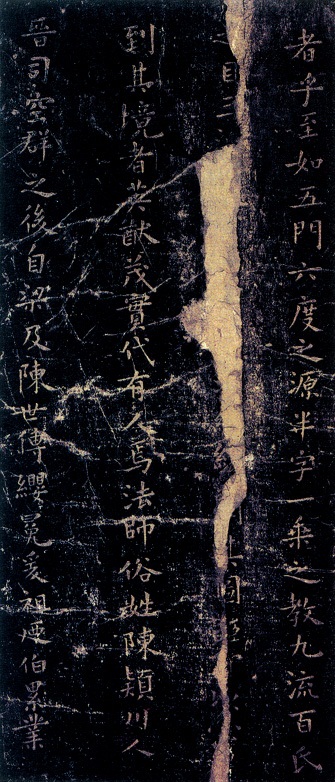 者乎至如五門六度之源半字一乘之教九流百氏
之目三
到其境者英猷茂實代有人焉法師俗姓陳潁川人
晉司空群之後自梁及陳世傳纓冕爰祖逮伯累業